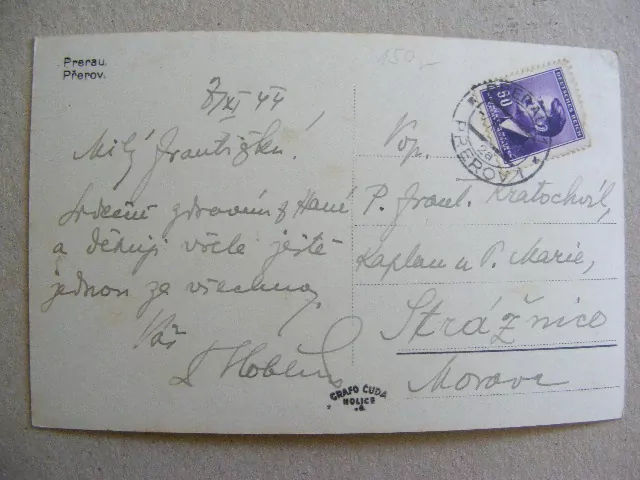 Prerau.
Přerov.
150,-
8/XI 44
Milý Františku!
Srdečně zdravím z Hané
a děkuji vřele ještě
jednou za všechno.
Váš
Vdp.
P. Frant. Kratochvíl,
kaplan u P. Marie,
Strážnice
Morava
GRAFO ČUDA
HOLICE
DEUTSCHES REICH
60
PRERAU
PŘEROV 1